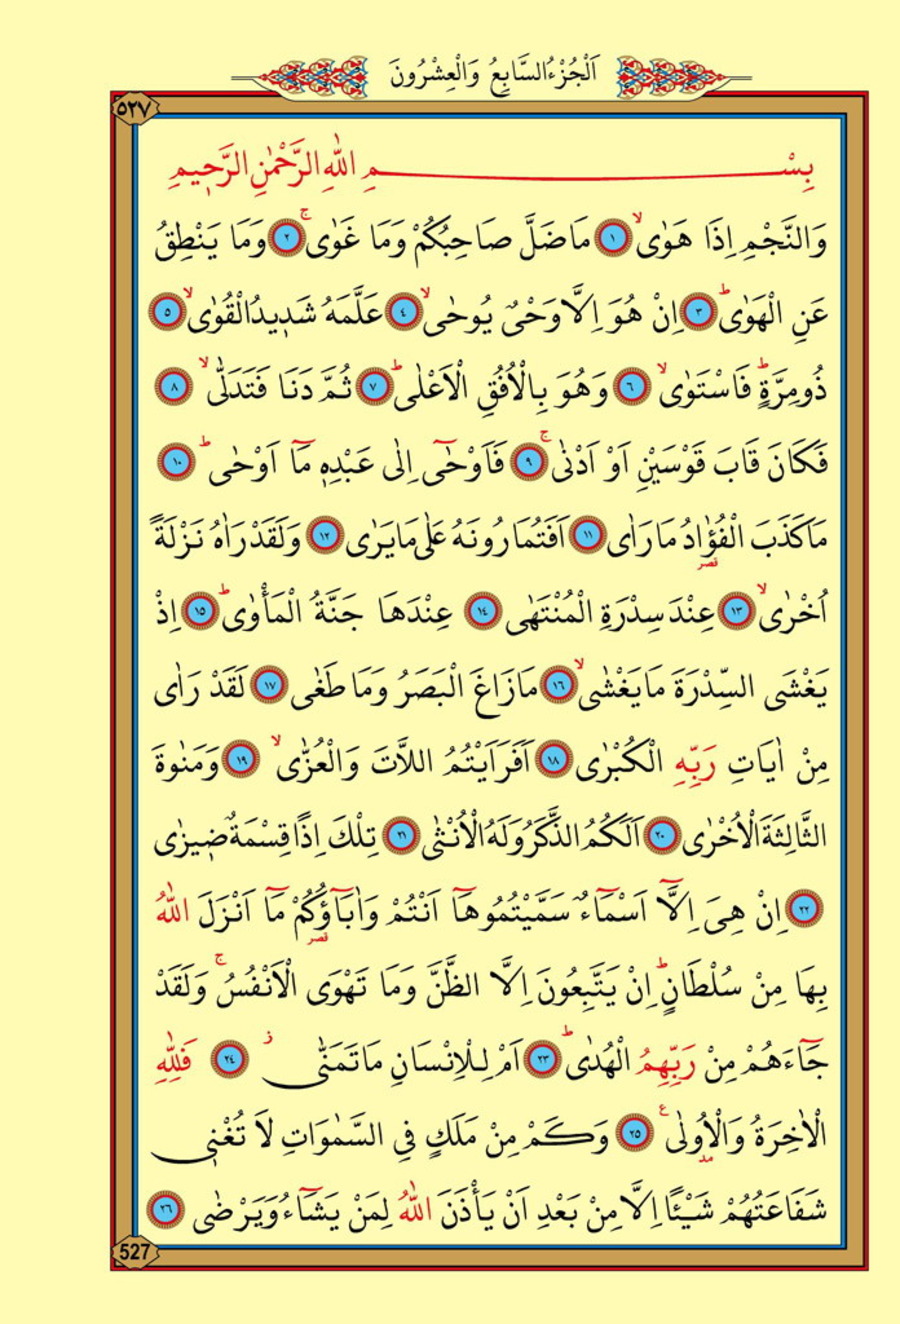 اَلْجُزْءُ السَّابِعُ وَالْعِشْرُونَ
٥٢٧
بِسْمِ اللّٰهِ الرَّحْمٰنِ الرَّحٖيمِ
وَالنَّجْمِ اِذَا هَوٰىۙ ١ مَا ضَلَّ صَاحِبُكُمْ وَمَا غَوٰىۚ ٢ وَمَا يَنْطِقُ
عَنِ الْهَوٰىؕ ٣ اِنْ هُوَ اِلَّا وَحْىٌ يُوحٰىۙ ٤ عَلَّمَهُ شَدٖيدُ الْقُوٰىۙ ٥
ذُو مِرَّةٍؕ فَاسْتَوٰىۙ ٦ وَهُوَ بِالْاُفُقِ الْاَعْلٰىؕ ٧ ثُمَّ دَنَا فَتَدَلّٰىۙ ٨
فَكَانَ قَابَ قَوْسَيْنِ اَوْ اَدْنٰىۚ ٩ فَاَوْحٰٓى اِلٰى عَبْدِهٖ مَٓا اَوْحٰىؕ ١٠
مَا كَذَبَ الْفُؤٰادُ مَا رَاٰى ١١ اَفَتُمَارُونَهُ عَلٰى مَا يَرٰى ١٢ وَلَقَدْ رَاٰهُ نَزْلَةً
قصر
اُخْرٰىۙ ١٣ عِنْدَ سِدْرَةِ الْمُنْتَهٰى ١٤ عِنْدَهَا جَنَّةُ الْمَأْوٰىؕ ١٥ اِذْ
يَغْشَى السِّدْرَةَ مَا يَغْشٰىۙ ١٦ مَا زَاغَ الْبَصَرُ وَمَا طَغٰى ١٧ لَقَدْ رَاٰى
مِنْ اٰيَاتِ رَبِّهِ الْكُبْرٰى ١٨ اَفَرَاَيْتُمُ اللَّاتَ وَالْعُزّٰىۙ ١٩ وَمَنٰوةَ
الثَّالِثَةَ الْاُخْرٰى ٢٠ اَلَكُمُ الذَّكَرُ وَلَهُ الْاُنْثٰى ٢١ تِلْكَ اِذًا قِسْمَةٌ ضٖيزٰى
٢٢ اِنْ هِىَ اِلَّٓا اَسْمَٓاءٌ سَمَّيْتُمُوهَٓا اَنْتُمْ وَاٰبَٓاؤُ۬كُمْ مَٓا اَنْزَلَ اللّٰهُ
قصر
بِهَا مِنْ سُلْطَانٍؕ اِنْ يَتَّبِعُونَ اِلَّا الظَّنَّ وَمَا تَهْوَى الْاَنْفُسُۚ وَلَقَدْ
جَٓاءَهُمْ مِنْ رَبِّهِمُ الْهُدٰىؕ ٢٣ اَمْ لِلْاِنْسَانِ مَا تَمَنّٰىؗ ٢٤ فَلِلّٰهِ
الْاٰخِرَةُ وَالْاُو۫لٰى ع ٢٥ وَكَمْ مِنْ مَلَكٍ فِى السَّمٰوَاتِ لَا تُغْنٖى
مد
شَفَاعَتُهُمْ شَيْـًٔا اِلَّا مِنْ بَعْدِ اَنْ يَأْذَنَ اللّٰهُ لِمَنْ يَشَٓاءُ وَيَرْضٰى ٢٦
527